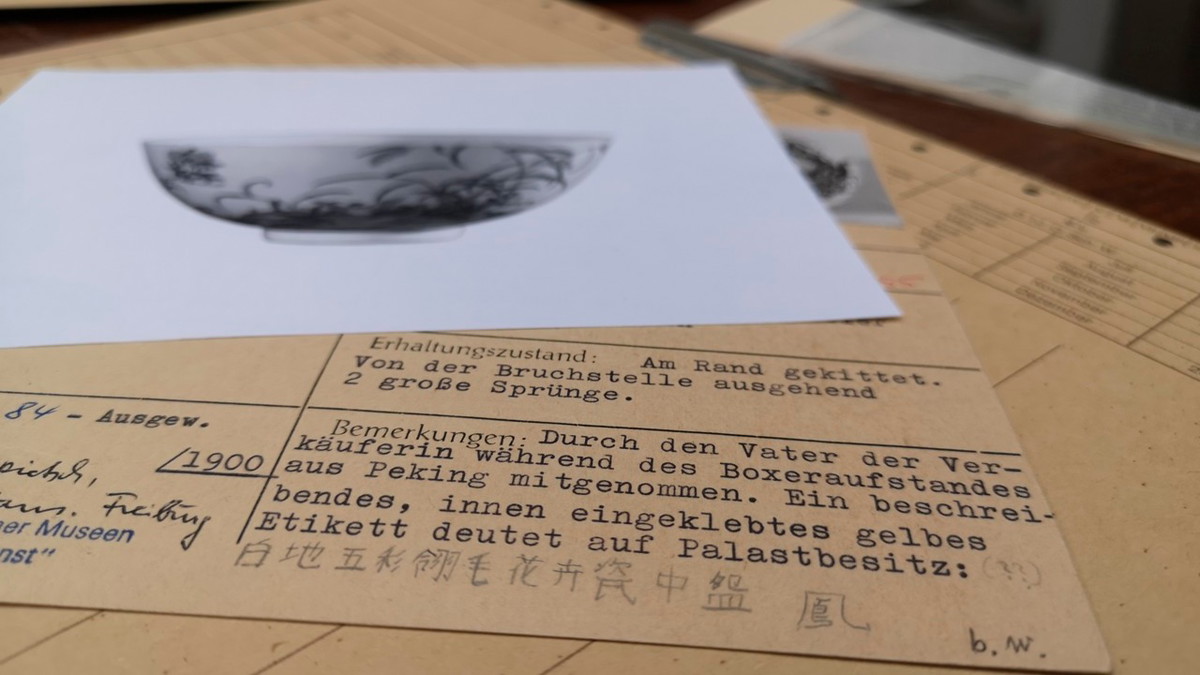 Erhaltungszustand: Am Rand gekittet.
Von der Bruchstelle ausgehend
2 große Sprünge.
84 - Ausgew.
/1900
Freiburg
er Museen
nst"
Bemerkungen: Durch den Vater der Ver-
käuferin während des Boxeraufstandes
aus Peking mitgenommen. Ein beschrei-
bendes, innen eingeklebtes gelbes
Etikett deutet auf Palastbesitz: (??)
白地五彩翎毛花卉瓷中盌 鳳
b.w.